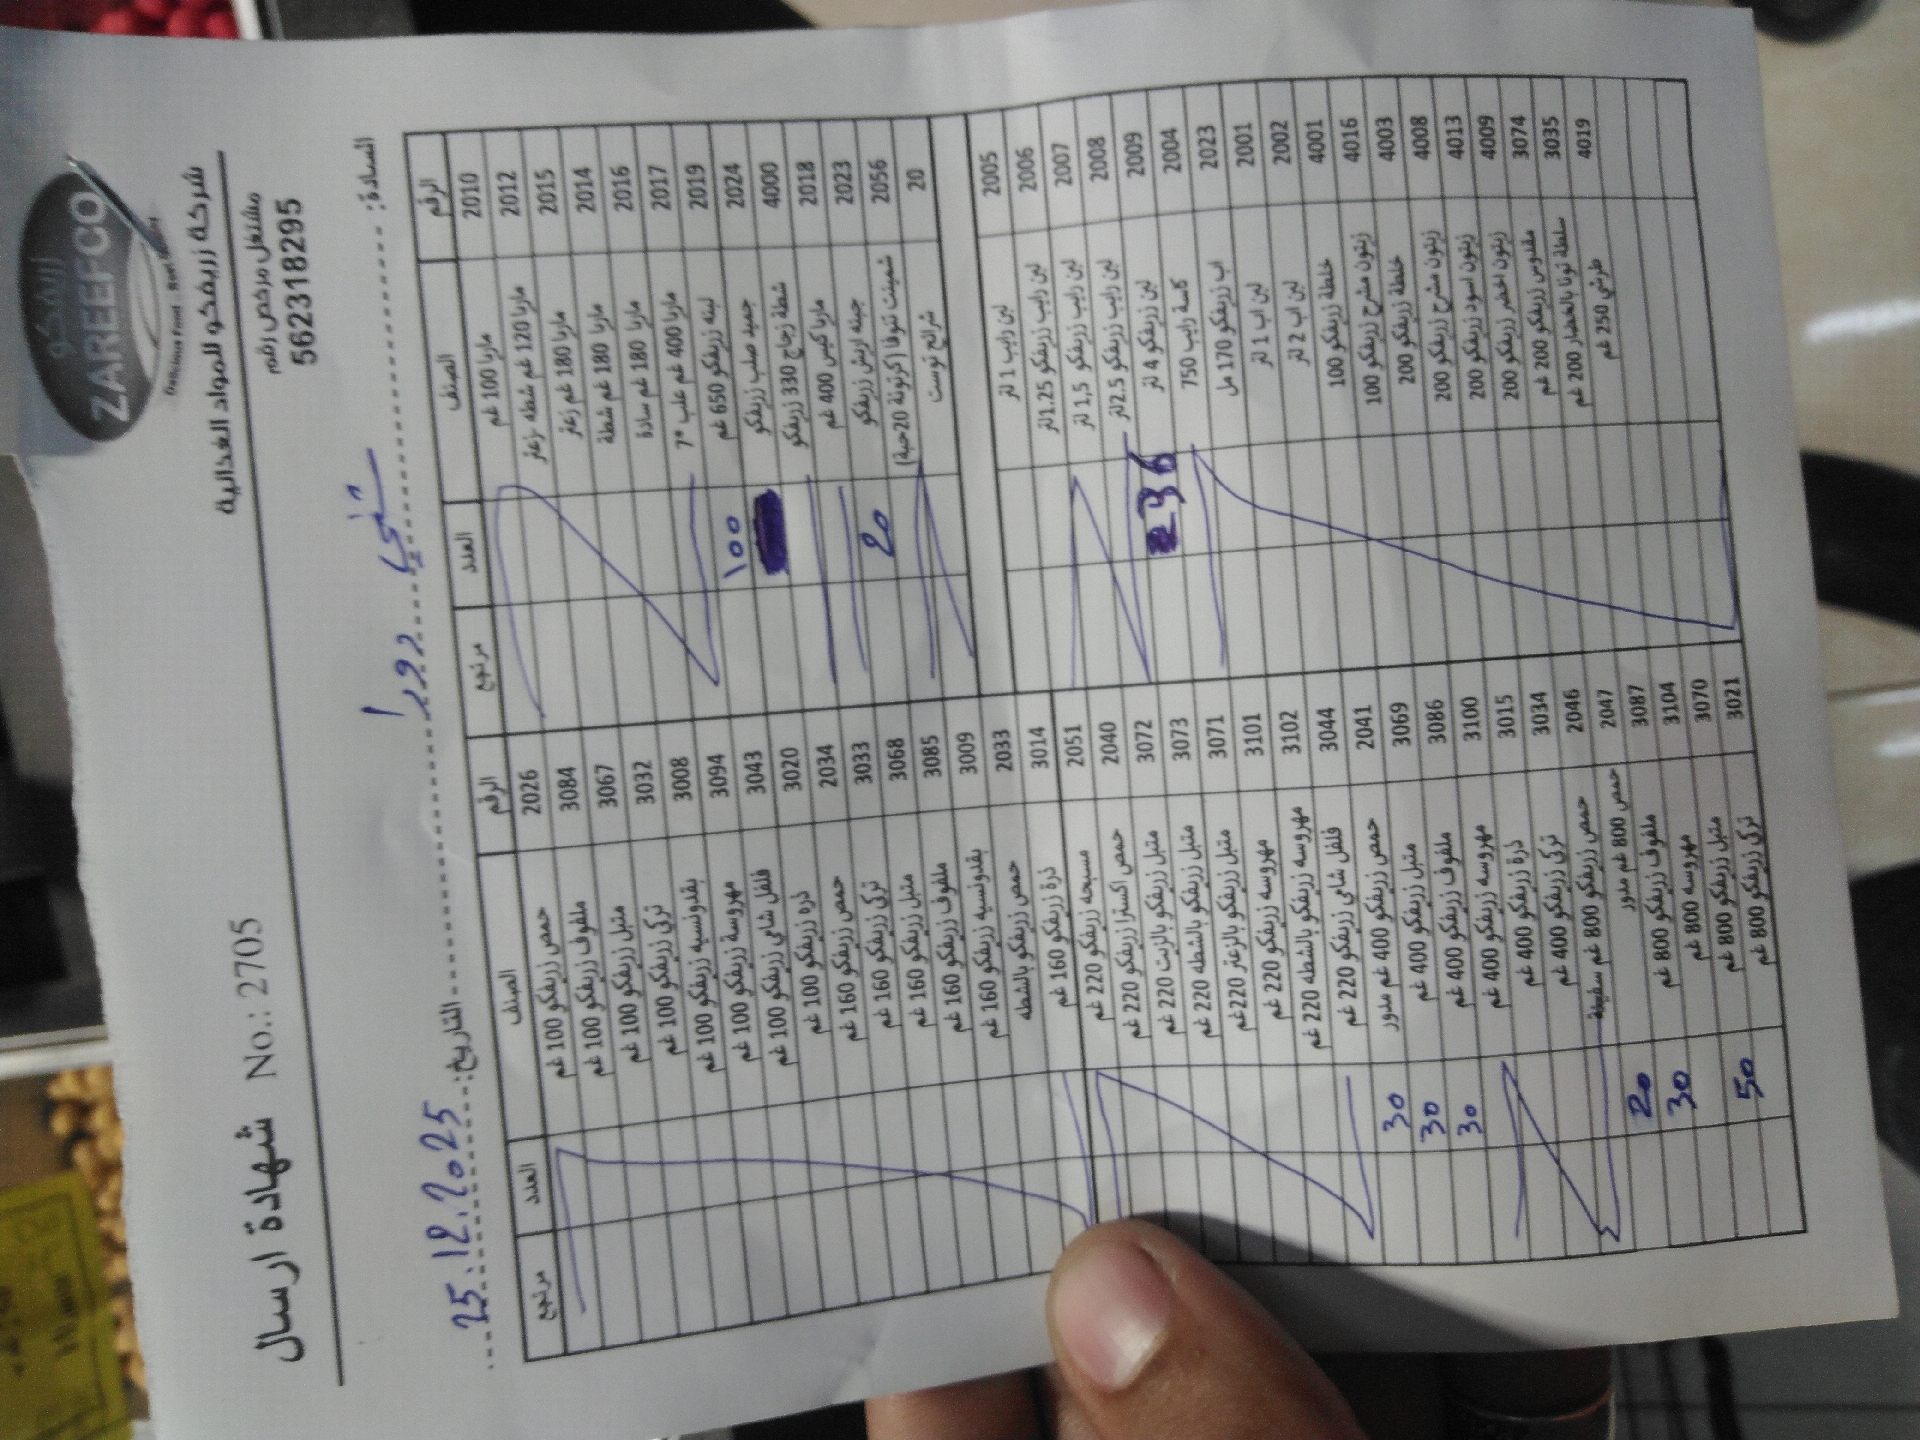 زريفكو
ZAREEFCO
شركة زريفكو للمواد الغذائية
مشتغل مرخص رقم
562318295
شهادة ارسال No.: 2705
السادة: دورا
التاريخ: 25.12.2025
الرقم الصنف العدد مرتجع
2010 مارتا 100 غم
2012 مارتا 120 غم شطه -زعتر
2015 مارتا 180 غم زعتر
2014 مارتا 180 غم شطة
2016 مارتا 180 غم سادة
2017 مارتا 400 غم علب *7
2019 لبنه زريفكو 650 غم
2024 جميد صلب زريفكو 100
4000 شطة زجاج 330 زريفكو
2018 مارتا كيس 400 غم
2023 جبنه ارتش زريفكو
2056 شمينت تنوفا (كرتونة 20حبة) 20
20 شرائح توست
2005 لبن رايب 1 لتر
2006 لبن رايب زريفكو 1.25لتر
2007 لبن رايب زريفكو 1,5 لتر
2008 لبن رايب زريفكو 2.5لتر
2009 لبن زريفكو 4 لتر
2004 كاسة رايب 750 36
2023 اب زريفكو 170 مل
2001 لبن اب 1 لتر
2002 لبن اب 2 لتر
4001 خلطة زريفكو 100
4016 زيتون مشرح زريفكو 100
4003 خلطة زريفكو 200
4008 زيتون مشرح زريفكو 200
4013 زيتون اسود زريفكو 200
4009 زيتون اخضر زريفكو 200
3074 مقدوس زريفكو 200 غم
3035 سلطة تونا بالخضار 200 غم
4019 طرشي 250 غم
الرقم الصنف العدد مرتجع
2026 حمص زريفكو 100 غم
3084 ملفوف زريفكو 100 غم
3067 متبل زريفكو 100 غم
3032 تركي زريفكو 100 غم
3008 بقدونسيه زريفكو 100 غم
3094 مهروسة زريفكو 100 غم
3043 فلفل شامي زريفكو 100 غم
3020 ذره زريفكو 100 غم
2034 حمص زريفكو 160 غم
3033 تركي زريفكو 160 غم
3068 متبل زريفكو 160 غم
3085 ملفوف زريفكو 160 غم
3009 بقدونسيه زريفكو 160 غم
2033 حمص زريفكو بالشطه
3014 ذرة زريفكو 160 غم
2051 مسبحه زريفكو 220 غم
2040 حمص اكسترا زريفكو 220 غم
3072 متبل زريفكو بالزيت 220 غم
3073 متبل زريفكو بالشطه 220 غم
3071 متبل زريفكو بالزعتر 220غم
3101 مهروسه زريفكو 220 غم
3102 مهروسه زريفكو بالشطه 220 غم
3044 فلفل شامي زريفكو 220 غم
2041 حمص زريفكو 400 غم مدور
3069 متبل زريفكو 400 غم 30
3086 ملفوف زريفكو 400 غم 30
3100 مهروسه زريفكو 400 غم 30
3015 ذرة زريفكو 400 غم
3034 تركي زريفكو 400 غم
2046 حمص زريفكو 800 غم سفيطة
2047 حمص 800 غم مدور
3087 ملفوف زريفكو 800 غم 20
3104 مهروسه 800 غم 30
3070 متبل زريفكو 800 غم
3021 تركي زريفكو 800 غم 50